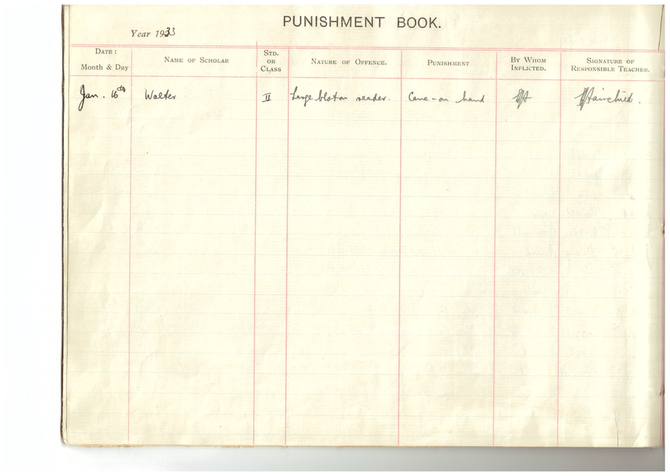 PUNISHMENT BOOK.
Year 1933
DATE: Month & Day
NAME OF SCHOLAR
STD. OR CLASS
NATURE OF OFFENCE.
PUNISHMENT
BY WHOM INFLICTED.
SIGNATURE OF RESPONSIBLE TEACHER.
Jan. 16th Walter II Large blot on reader. Cane - on hand